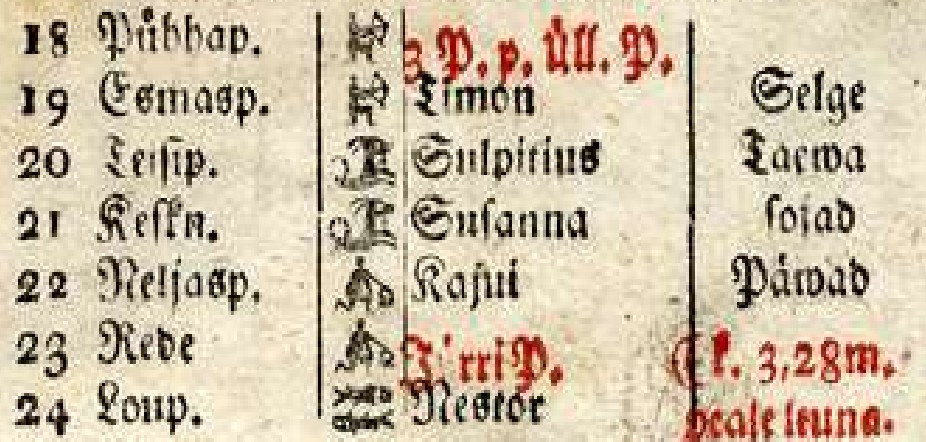 18 Pühhap. 3 P. p. üll. P.
19 Esmasp. Timon Selge
20 Teisip. Sulpitius Taewa
21 Keskn. Susanna sojad
22 Neljasp. Kajui Päiwad
23 Rede Jürri P. Ek. 3,28m.
24 Loup. Nestor